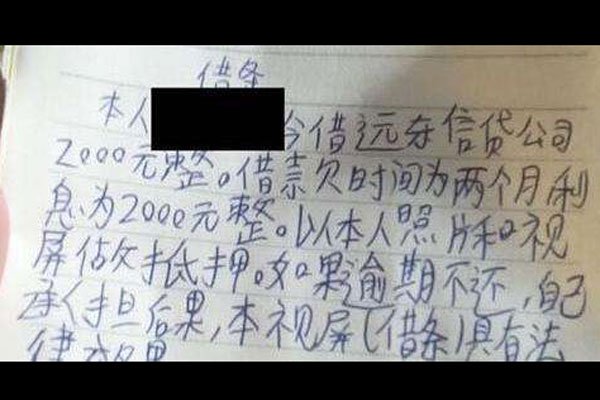 借条
本人 今借远夺信贷公司
2000元整。借款欠时间为两个月利
息为2000元整。以本人照片和视
屏估欠抵押。如果逾期不还,自己
承担后果,本视屏(借条)具有法
律效果